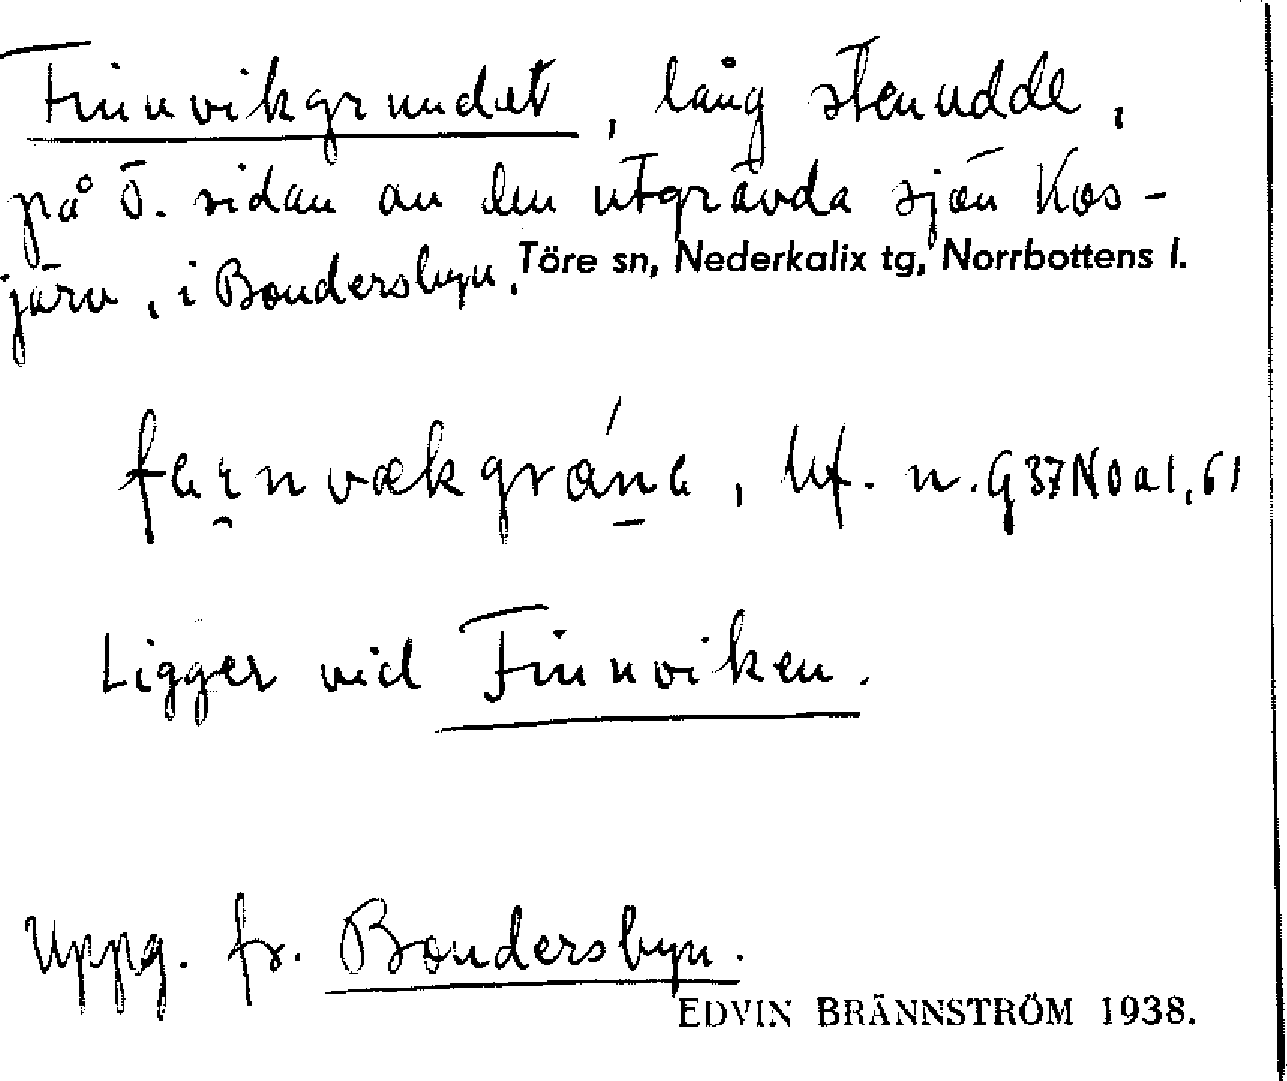 Finnvikgrundet, lång stenudde,
på ö. sidan av den utgrävda sjön Kos-
järv, i Bondersbyn. Töre sn, Nederkalix tg, Norrbottens l.
Ligger vid Finnviken.
Uppg. fr. Bondersbyn.
EDVIN BRÄNNSTRÖM 1938.